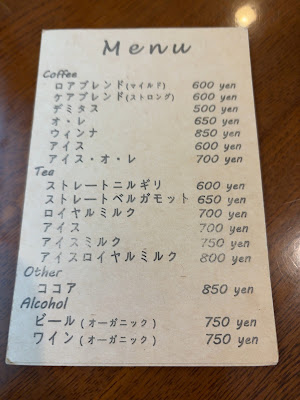 Menu
Coffee
ロアブレンド(マイルド) 600 yen
ケアブレンド(ストロング) 600 yen
デミタス 500 yen
オ・レ 650 yen
ウィンナ 850 yen
アイス 600 yen
アイス・オ・レ 700 yen
Tea
ストレートニルギリ 600 yen
ストレートベルガモット 650 yen
ロイヤルミルク 700 yen
アイス 700 yen
アイスミルク 750 yen
アイスロイヤルミルク 800 yen
Other
ココア 850 yen
Alcohol
ビール(オーガニック) 750 yen
ワイン(オーガニック) 750 yen